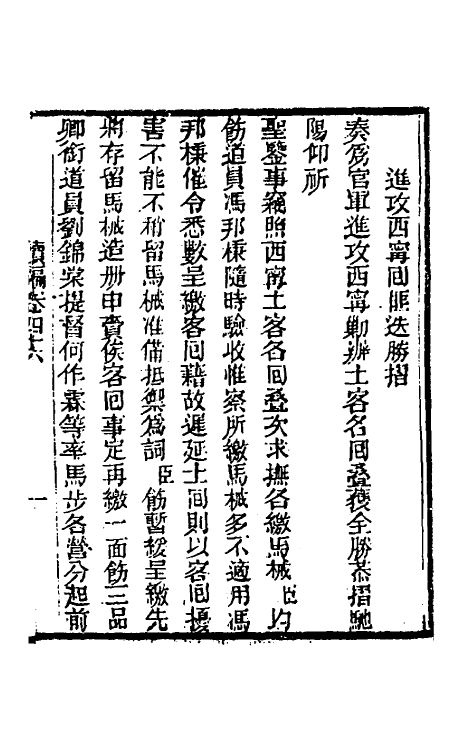 進攻西寧回匪迭勝摺
奏為官軍進攻西寧勦辦土客各回疊獲全勝恭摺馳
陽仰祈
聖鑒事竊照西寧土客各回疊次求撫各繳馬械臣均
飭道員馮邦棟隨時驗收惟察所繳馬械多不適用馮
邦棟催令悉數呈繳客回藉故遲延土回則以客回擾
害不能不稍留馬械准備抵禦為詞臣飭暫緩呈繳先
將存留馬械造册申賫俟客回事定再繳一面飭三品
卿銜道員劉錦棠提督何作霖等率馬步各營分起前
續編卷四十六
一